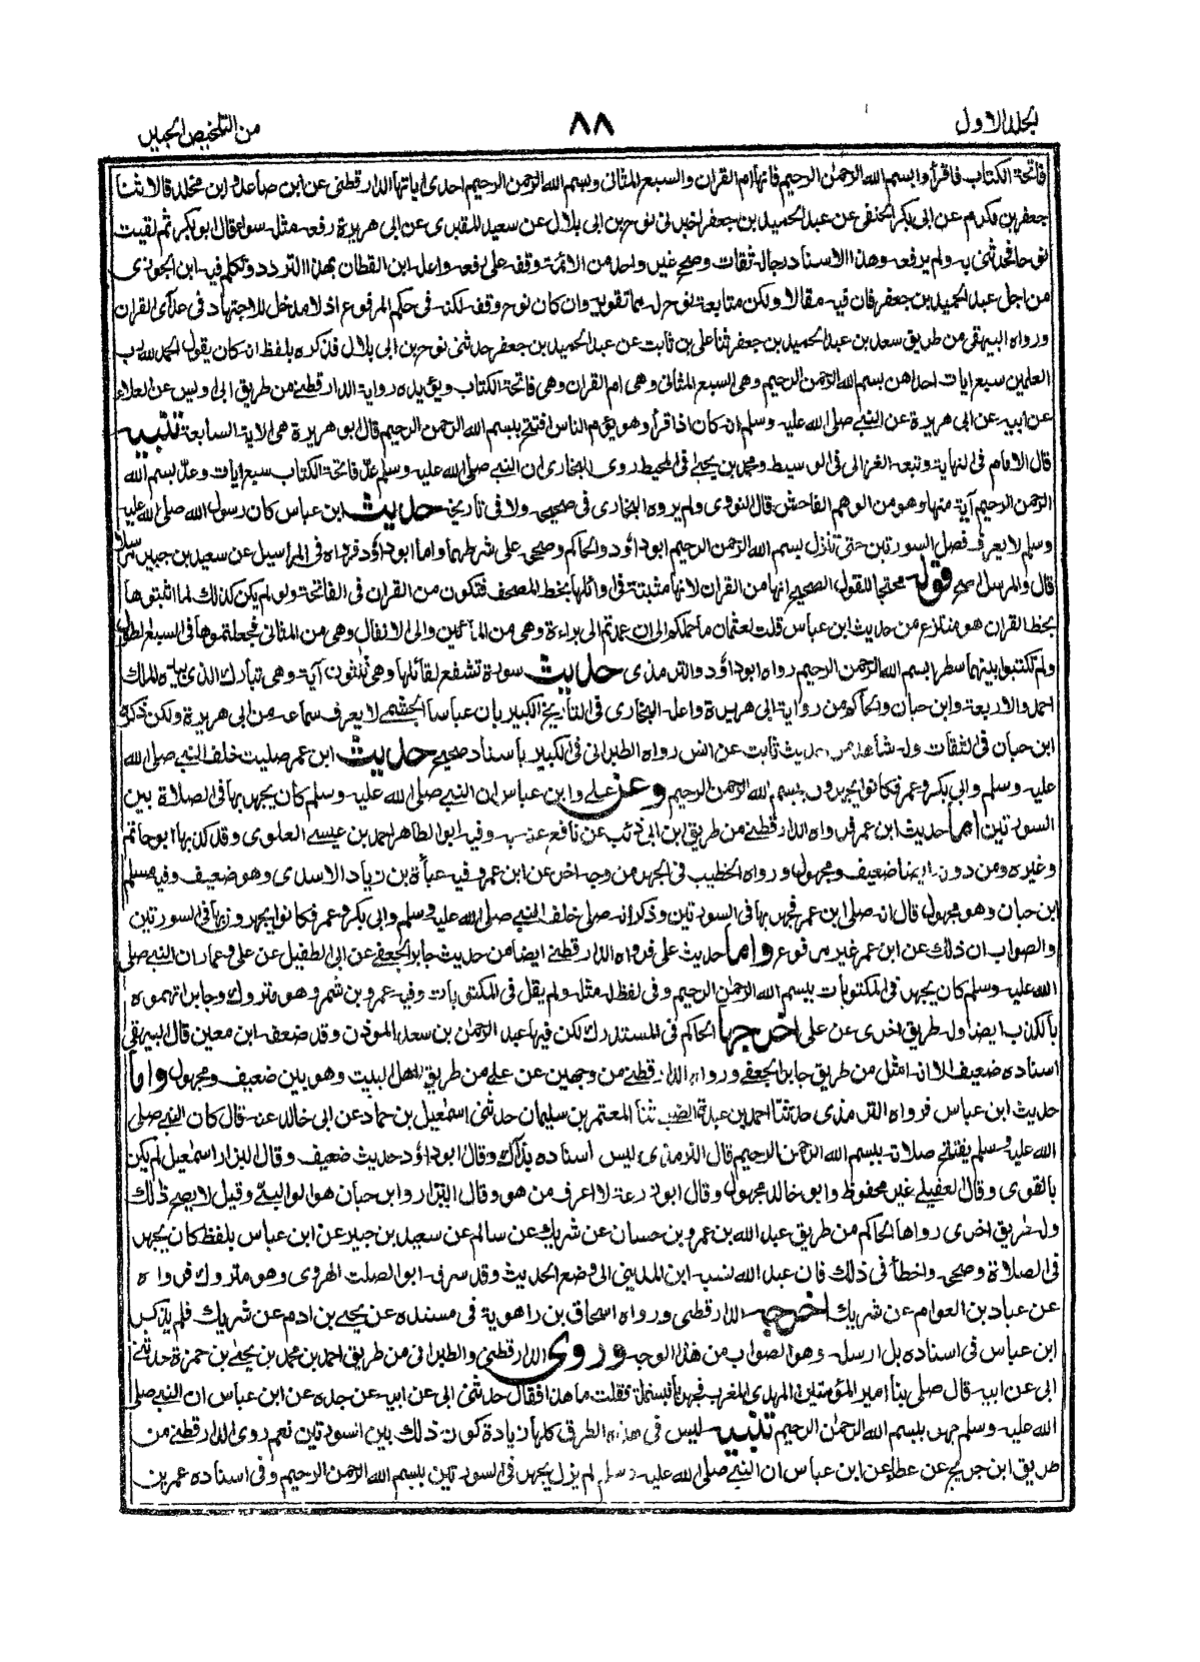 المجلد الاول
٨٨
من التلخيص الحبير
فاتحة الكتاب فاقرأوا بسم الله الرحمن الرحيم فانها ام القران والسبع المثاني وبسم الله الرحمن الرحيم احدى اياتها الدارقطني عن ابن صاعد وابن مخلد قالا ثنا
جعفر بن مكرم عن ابى بكر الحنفى عن عبد الحميد بن جعفر اخبرنى نوح بن ابى بلال عن سعيد المقبرى عن ابى هريرة رفعه مثله سواء قال ابو بكر ثم لقيت
نوحا فحدثنى به ولم يرفعه وهذا الاسناد رجاله ثقات وصحح غير واحد من الائمة وقفه على رفعه واعله ابن القطان بهذا التردد وتكلم فيه ابن الجوزى
من اجل عبد الحميد بن جعفر فان فيه مقالا ولكن متابعة نوح له مما تقويه وان كان نوح وقفه لكنه فى حكم المرفوع اذ لا مدخل للاجتهاد فى عد آى القران
ورواه البيهقى من طريق سعد بن عبد الحميد بن جعفر ثنا على بن ثابت عن عبد الحميد بن جعفر حدثنى نوح بن ابى بلال فذكره بلفظ انه كان يقول الحمد لله رب
العلمين سبع ايات احداهن بسم الله الرحمن الرحيم وهى السبع المثانى وهى ام القران وهى فاتحة الكتاب ويؤيده رواية الدارقطنى من طريق ابى اويس عن العلاء
عن ابيه عن ابى هريرة عن النبى صلى الله عليه وسلم انه كان اذا قرأ وهو يؤم الناس افتتح ببسم الله الرحمن الرحيم قال ابو هريرة هى الاية السابعة تنبيه
قال الامام فى النهاية وتبعه الغزالى فى الوسيط ومحمد بن يحيى فى المحيط روى البخارى ان النبى صلى الله عليه وسلم عد فاتحة الكتاب سبع ايات وعد بسم الله
الرحمن الرحيم آية منها وهو من الوهم الفاحش قال النووى ولم يروه البخارى فى صحيحه ولا فى تاريخه حديث ابن عباس كان رسول الله صلى الله عليه
وسلم لا يعرف فصل السورتين حتى تنزل بسم الله الرحمن الرحيم ابو داؤد والحاكم وصححه على شرطهما واما ابو داؤد فرواه فى المراسيل عن سعيد بن جبير مرسلا
قال والمرسل اصح قوله محتجا للقول الصحيح انها من القران لانها مثبتة فى اوائلها بخط المصحف فتكون من القران فى الفاتحة ولو لم يكن كذلك لما اثبتوها
بخط القران هو منتزع من حديث ابن عباس قلت لعثمان ما حملكم الى ان عمدتم الى براءة وهى من المأئين والى الانفال وهى من المثانى فجعلتموها فى السبع الطوال
ولم تكتبوا بينهما سطر بسم الله الرحمن الرحيم رواه ابو داؤد والترمذى حديث سورة تشفع لقائلها وهى ثلثون آية وهى تبارك الذى بيده الملك
احمد والاربعة وابن حبان والحاكم من رواية ابى هريرة واعله البخارى فى التأريخ الكبير بان عباسا الجشمى لا يعرف سماعه من ابى هريرة ولكن ذكره
ابن حبان فى الثقات وله شاهد من حديث ثابت عن انس رواه الطبرانى فى الكبير باسناد صحيح حديث ابن عمر صليت خلف النبى صلى الله
عليه وسلم وابى بكر وعمر فكانوا يجهرون ببسم الله الرحمن الرحيم وعن على وابن عباس ان النبى صلى الله عليه وسلم كان يجهر بها فى الصلاة بين
السورتين اما حديث ابن عمر فرواه الدارقطنى من طريق ابن ابى ذئب عن نافع عنه وفيه ابو الطاهر احمد بن عيسى العلوى وقد كذبه ابو حاتم
وغيره ومن دونه ايضا ضعيف ومجهول ورواه الخطيب فى الجهر من وجه اخر عن ابن عمر وفيه عبادة بن زياد الاسدى وهو ضعيف وفيه مسلم
ابن حبان وهو مجهول قال انه صلى ابن عمر فجهر بها فى السورتين وذكر انه صلى خلف النبى صلى الله عليه وسلم وابى بكر وعمر فكانوا يجهرون بها فى السورتين
والصواب ان ذلك عن ابن عمر غير مرفوع واما حديث على فرواه الدارقطنى ايضا من حديث جابر الجعفى عن ابى الطفيل عن على وعمار ان النبى صلى
الله عليه وسلم كان يجهر فى المكتوبات ببسم الله الرحمن الرحيم وفى لفظ له مثله ولم يقل فى المكتوبات وفيه عمرو بن شمر وهو متروك وجابر اتهموه
بالكذب ايضا وله طريق اخرى عن على اخرجها الحاكم فى المستدرك لكن فيها عبد الرحمن بن سعد المؤذن وقد ضعفه ابن معين قال البيهقى
اسناده ضعيف الا انه امثل من طريق جابر الجعفى ورواه الدارقطنى من وجهين عن على من طريق اهل البيت وهو بين ضعيف ومجهول واما
حديث ابن عباس فرواه الترمذى حدثنا احمد بن عبدة الضبى ثنا المعتمر بن سليمان حدثنى اسمعيل بن حماد عن ابى خالد عنه قال كان النبى صلى
الله عليه وسلم يفتتح صلاته ببسم الله الرحمن الرحيم قال الترمذى ليس اسناده بذاك وقال ابو داؤد حديث ضعيف وقال البزار اسمعيل لم يكن
بالقوى وقال العقيلى غير محفوظ وابو خالد مجهول وقال ابو زرعة لا اعرف من هو وقال البزار وابن حبان هو الوالبى وقيل لا يصح ذلك
وله طريق اخرى رواها الحاكم من طريق عبد الله بن عمرو بن حسان عن شريك عن سالم عن سعيد بن جبير عن ابن عباس بلفظ كان يجهر
فى الصلاة وصححه واخطأ فى ذلك فان عبد الله نسبه ابن المدينى الى وضع الحديث وقد سرقه ابو الصلت الهروى وهو متروك فرواه
عن عباد بن العوام عن شريك اخرجه الدارقطنى ورواه اسحاق بن راهوية فى مسنده عن يحيى بن ادم عن شريك فلم يذكر
ابن عباس فى اسناده بل ارسله وهو الصواب من هذا الوجه وروى الدارقطنى والطبرانى من طريق احمد بن محمد بن يحيى بن حمزة حدثنى
ابى عن ابيه قال صلى بنا امير المؤمنين المهدى المغرب فجهر بالبسملة فقلت ما هذا فقال حدثنى ابى عن ابيه عن جده عن ابن عباس ان النبى صلى
الله عليه وسلم جهر ببسم الله الرحمن الرحيم تنبيه ليس فى هذه الطرق كلها زيادة كون ذلك بين السورتين نعم روى الدارقطنى من
طريق ابن جريج عن عطاء عن ابن عباس ان النبى صلى الله عليه وسلم لم يزل يجهر فى السورتين ببسم الله الرحمن الرحيم وفى اسناده عمر بن